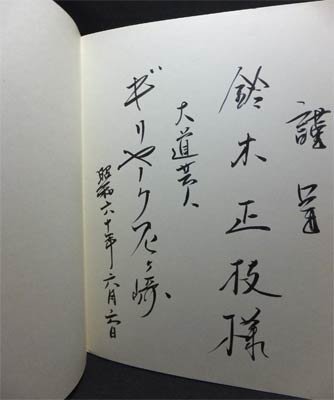 謹呈
鈴木正枝様
大道芸人
ギリヤーク尼ヶ崎
昭和六十年六月六日